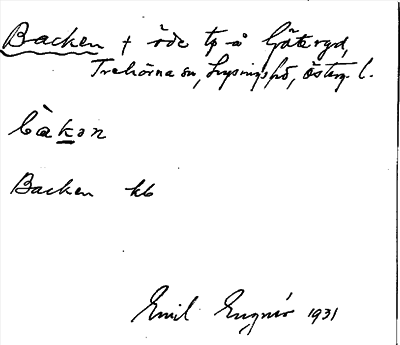 Backen + öde tp å Götaryd,
Trehörna sn, Lysings hd, Österg. l.
bàkan
Backen kb
Emil 1931